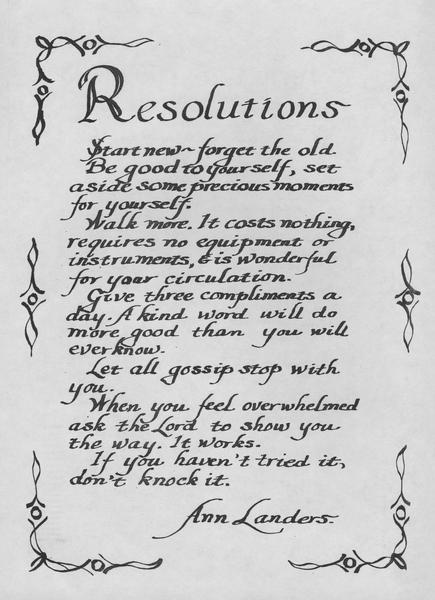 Resolutions
Start new~ forget the old.
Be good to yourself, set
aside some precious moments
for yourself.
Walk more. It costs nothing,
requires no equipment or
instruments, & is wonderful
for your circulation.
Give three compliments a
day. A kind word will do
more good than you will
ever know.
Let all gossip stop with
you.
When you feel overwhelmed
ask the Lord to show you
the way. It works.
If you haven't tried it,
don't knock it.
Ann Landers.